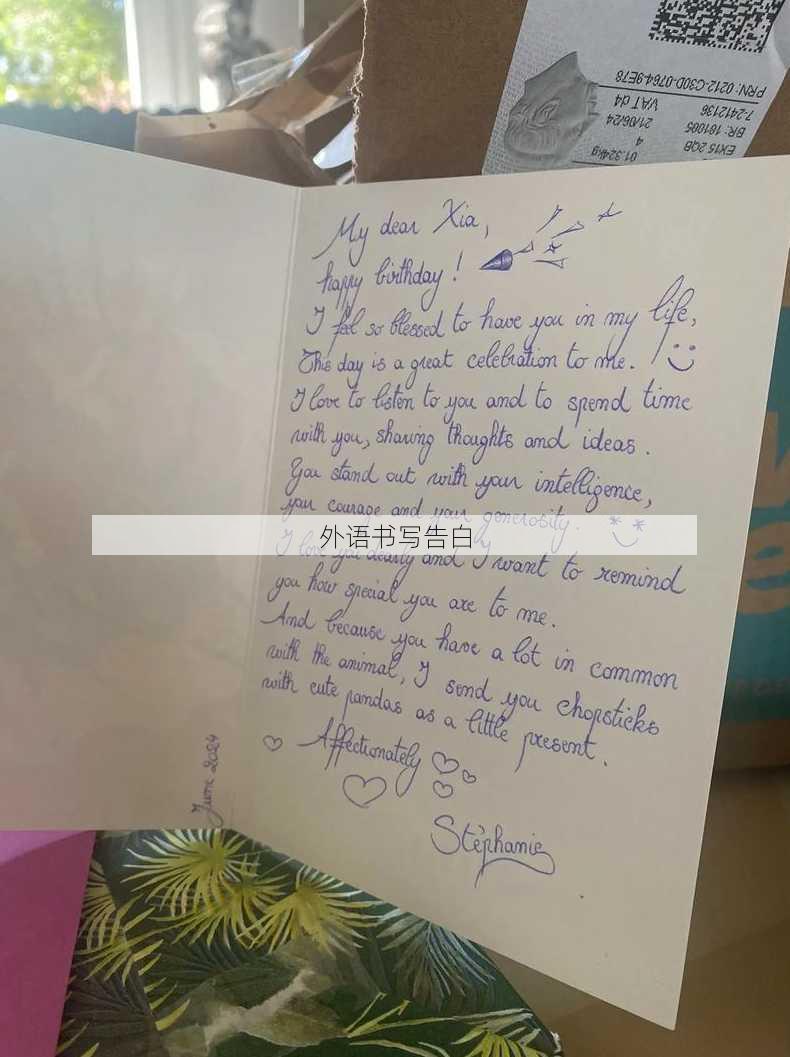 PRN: 0212-C30D-0764-9E78
7-2412136
VAT d4
BR: 181005
21/06/24
4
EX15 2QB
01.324kg
My dear Xia,
happy birthday !
I feel so blessed to have you in my life,
This day is a great celebration to me.
I love to listen to you and to spend time
with you, sharing thoughts and ideas.
You stand out with your intelligence,
your courage and your generosity.
外语书写告白
I love you dearly and I want to remind
you how special you are to me.
And because you have a lot in common
with the animal, I send you chopsticks
with cute pandas as a little present.
Affectionately
Stéphanie
June 2024